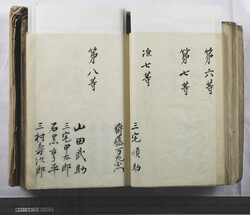 第六等
第七等
准七等
三宅順助
齋藤万
第八等
山田武助
三宅甲太郎
石黒亨平
三村寿次郎